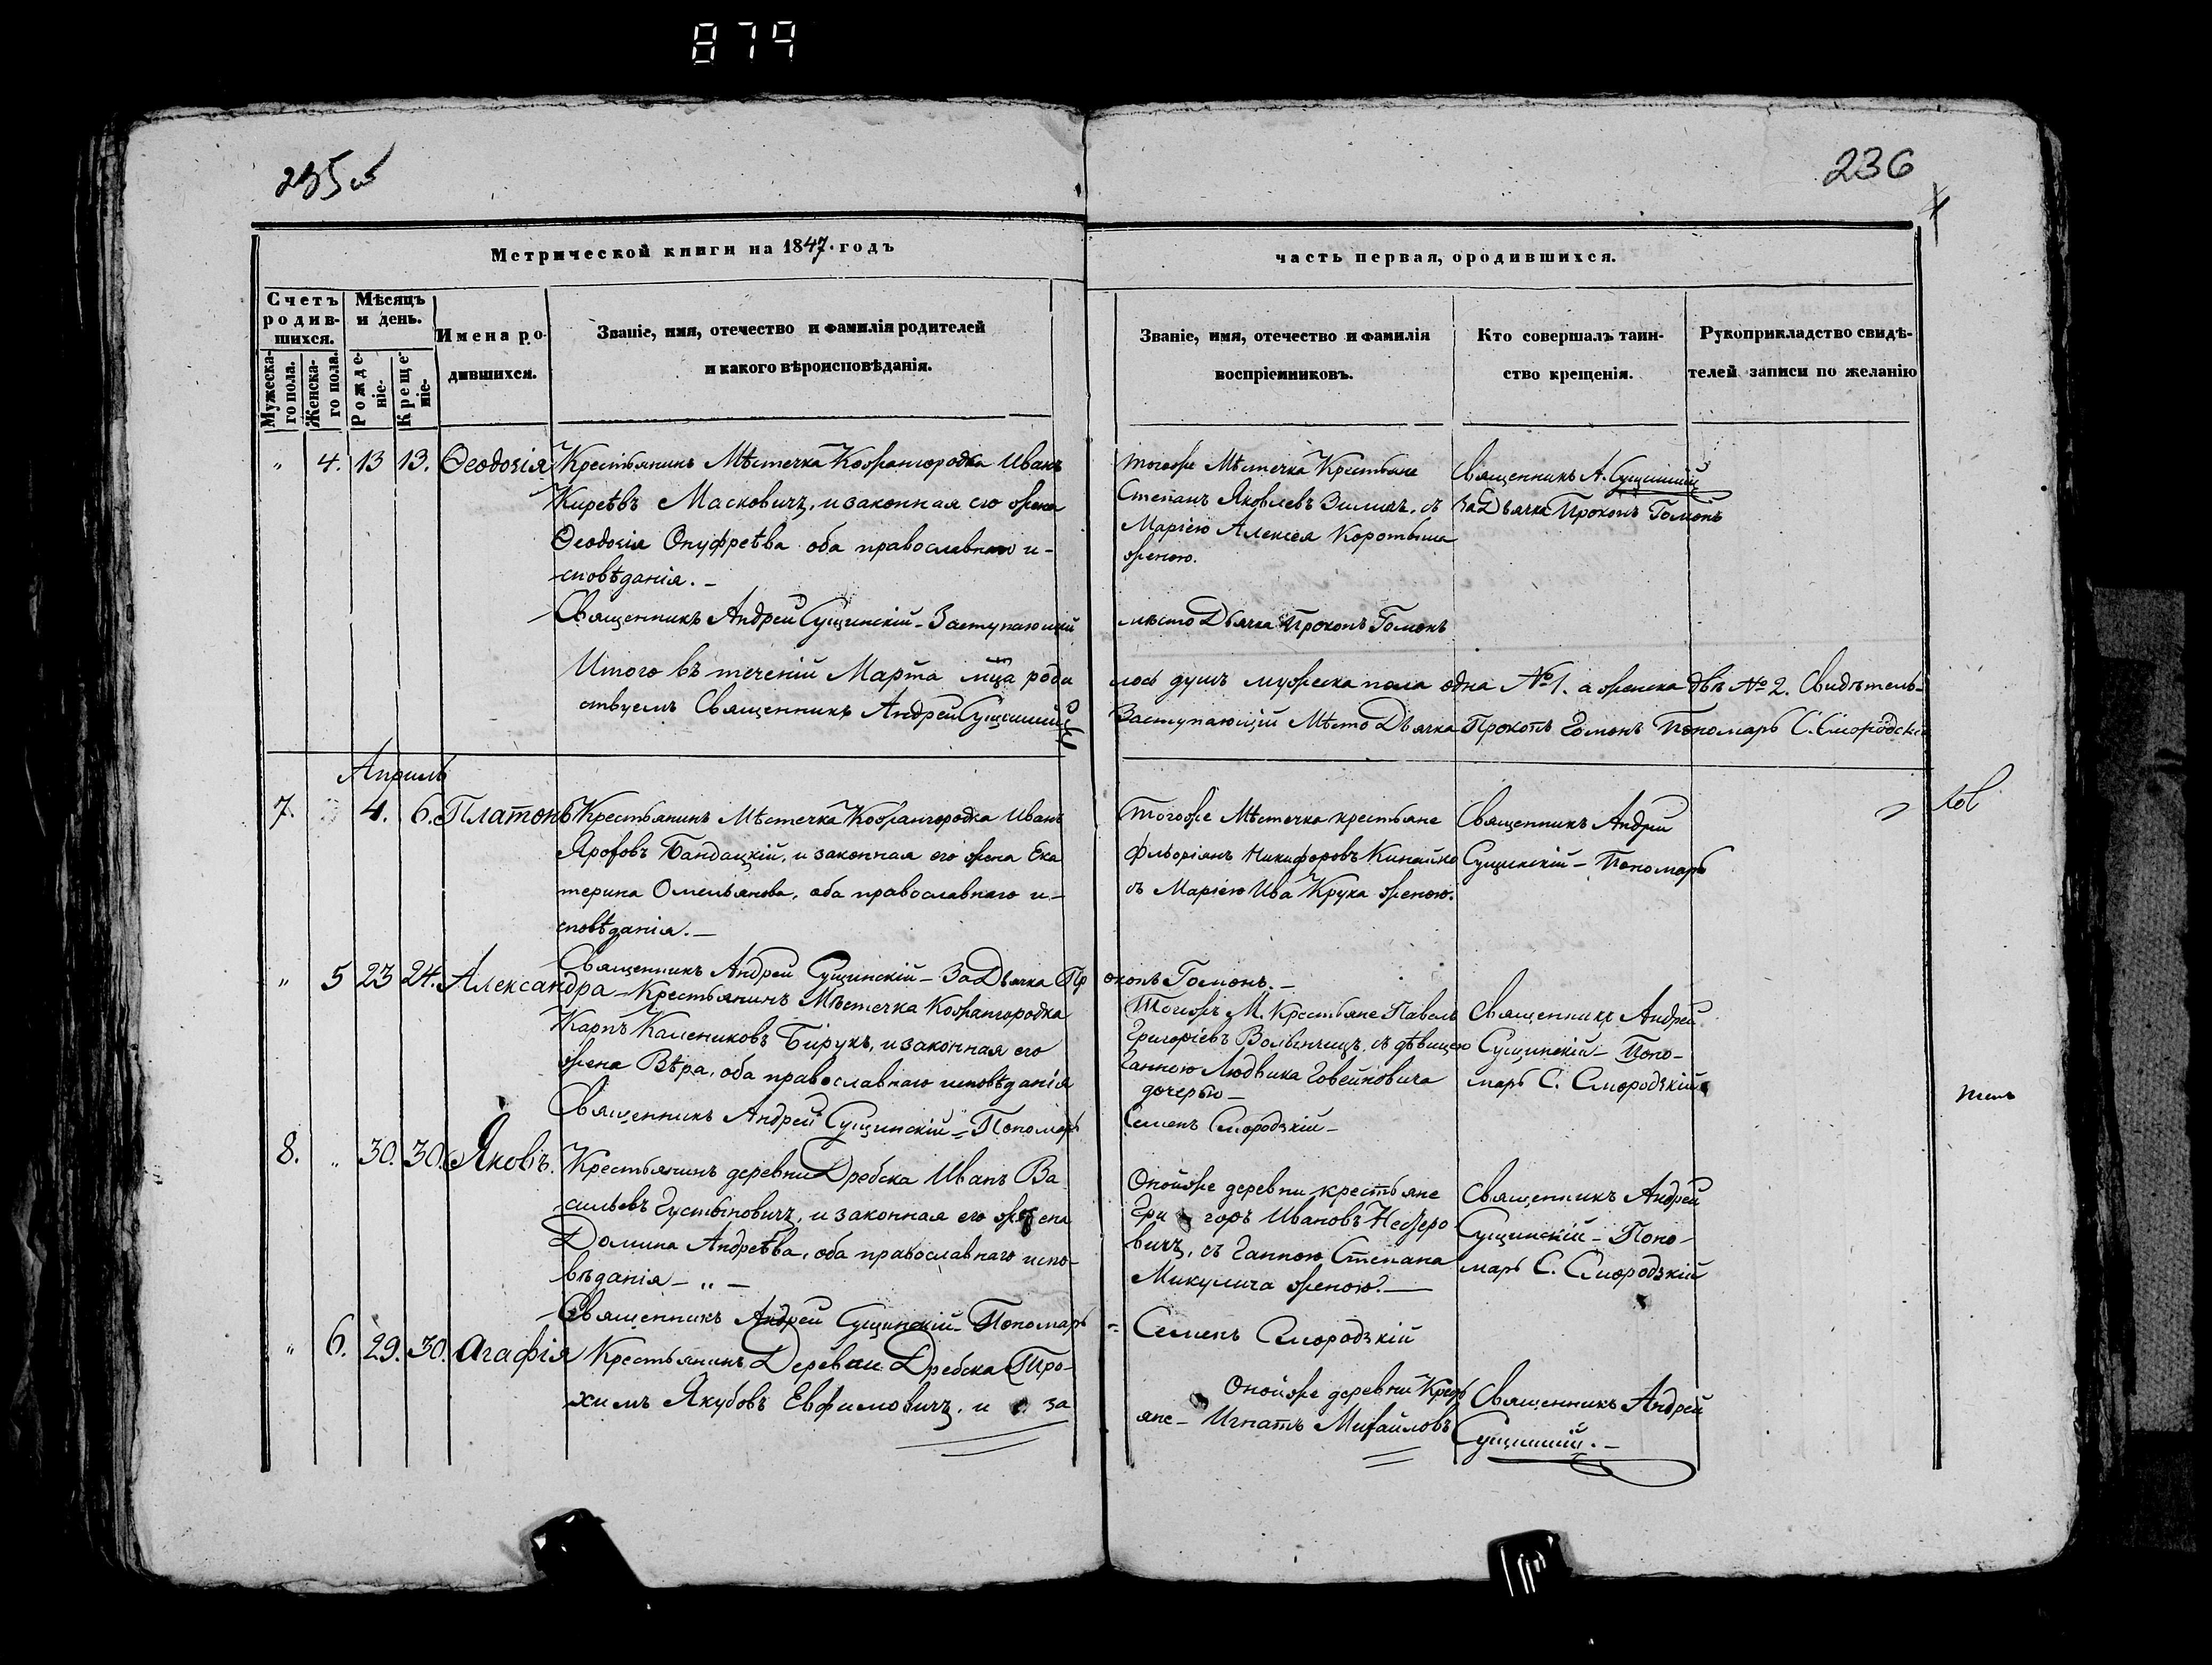 879
235 об
236
Метрической книги на 1847 годъ
часть первая, ородившихся.
Счетъ родив-
шихся.
Мѣсяцъ
и день.
Мужеска-
го пола.
Женска-
го пола.
Рожде-
ніе.
Креще-
ніе.
Имена ро-
дившихся.
Званіе, имя, отечество и фамилія родителей
и какого вѣроисповѣданія.
Званіе, имя, отечество и фамилія
воспріемниковъ.
Кто совершалъ таин-
ство крещенія.
Рукоприкладство свидѣ-
телей записи по желанію
" 4. 13 13. Ѳеодосія
Крестьянинъ Мѣстечка Кожангородка Иванъ
Киреѣвъ Масковичъ, и законная его жена
Ѳеодосія Онуфреѣва оба православнаго и-
сповѣданія. –
Священникъ Андрей Сущинскій – Заступающій
тогоже Мѣстечка Крестьяне
Степанъ Яковлевъ Зиличъ, съ
Маріею Алексея Коротыша
женою.
мѣсто Дьячка Прокопъ Гомонъ
Священникъ А. Сущинскій
За Дьячка Прокопъ Гомонъ
Итого въ теченіи Марта мца роди
лось душъ мужеска пола одна №1. а женска двѣ №2. Свидѣтель-
ствуемъ Священникъ Андрей Сущинскій
Заступающій Мѣсто Дьячка Прокопъ Гомонъ Пономарь С. Смородскій
Апрель
7. 4. 6. Платонъ
Крестьянинъ Мѣстечка Кожангородка Иванъ
Бандацкій, и законная его жена Ека
терина Омельянова, оба православнаго и-
сповѣданія. –
Священникъ Андрей Сущинскій – За Дьячка Пр
окопъ Гомонъ. –
Тогоже Мѣстечка крестьяне
Фльоріянъ Никифоровъ
съ Маріею Ива Крука женою.
Священникъ Андрей
Сущинскій – Пономарь
" 5 23 24. Александра
– Крестьянинъ Мѣстечка Кожангородка
Карпъ Калениковъ Бірукъ, и законная его
жена Вѣра, оба православнаго исповѣданія
Священникъ Андрей Сущинскій – Пономарь
Тогожъ М. Крестьяне Павелъ
Григоріевъ съ дѣвицею
Ганною Людвика Говейновича
дочерью –
Семенъ Смородзкій –
Священникъ Андрей
Сущинскій – Поно-
марь С. Смородзкій
8. " 30. 30. Яковъ.
Крестьянинъ деревни Дребска Иванъ Ва
сильевъ Густыновичъ, и законная его жена
Домина Андреѣва, оба православнаго испо-
вѣданія – " –
Священникъ Андрей Сущинскій – Пономарь
Оной же деревни крестьяне
Гри горъ Ивановъ
вичъ, съ Ганною Степана
Микулича женою. –
Семенъ Смородзкій
Священникъ Андрей
Сущинскій – Поно-
марь С. Смородзкій
" 6. 29. 30. Агафія
Крестьянинъ Деревни Дребска Тро-
химъ Якубовъ Евфимовичъ, и за
Оной же деревни
яне – Игнатъ Михайловъ
Священникъ Андрей
Сущинскій. –